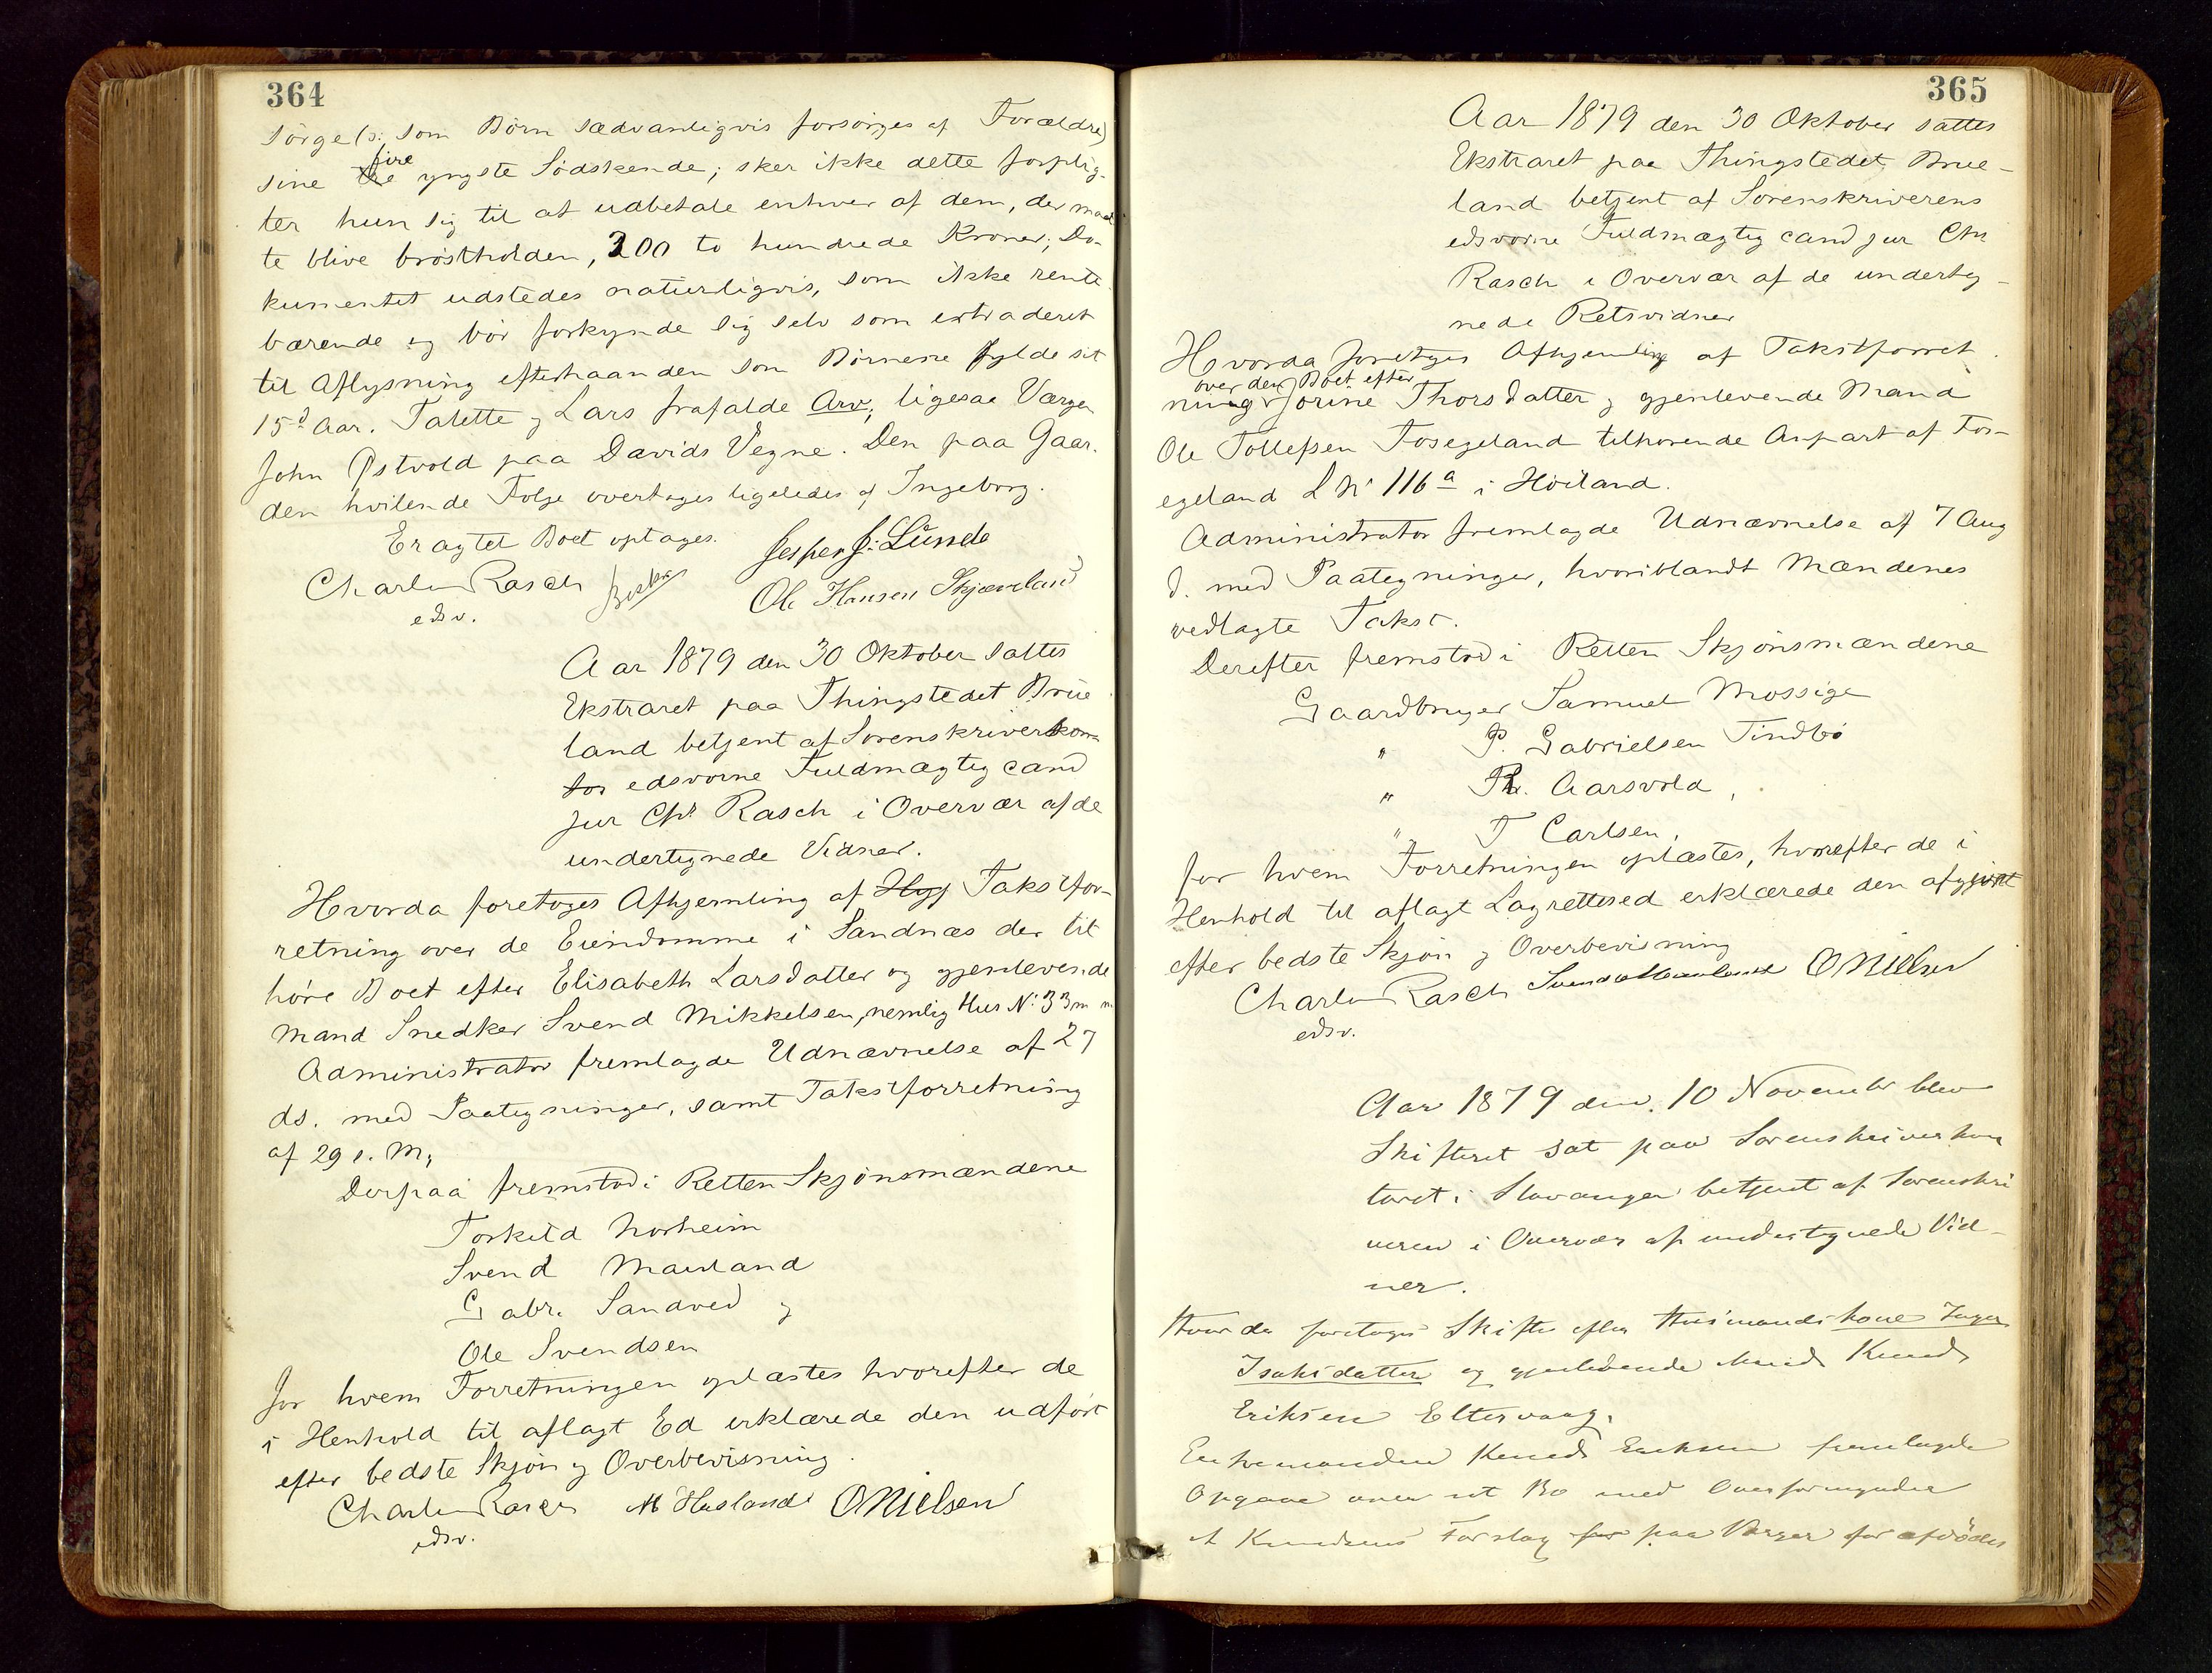 364
sörge (ɔ: som Börn sædvanligvis forsörges af Forældre)
sine fire yngste Södskende; sker ikke dette forplig-
ter hun sig til at udbetale enhver af dem, der maat
te blive bröstholden, 200 to hundrede Kroner; Do-
kumentet udstedes naturligvis, som ikke rente
bærende og bör forkynde sig selv som extraderet
til Aflysning efterhaanden som Börnene fylde sit
15d Aar. Talette og Lars frafalde Arv, ligesaa Værgen
John Østvold paa Davids Vegne. Den paa Gaar-
den hvilende Folge overtages ligeledes af Ingeborg.
Eragtet Boet optages.
Jesper J. Lunde
Charles Rasch
Ole Hansen Skjæveland
edsv.
Aar 1879 den 30 Oktober sattes
Ekstraret paa Thingstedet Brue
land betjent af Sorenskriverkon-
tor edsvorne Fuldmægtig cand
jur Chs Rasch i Overvær af de
undertegnede Vidner.
Hvorda foretoges Afhjemling af Takstfor-
retning over de Eiendomme i Sandnæs der til
høre Boet efter Elisabeth Larsdatter og gjenlevende
Mand Snedker Svend Mikkelsen, nemlig Hus No 33 m m
Administrator fremlagde Udnævnelse af 27
ds. med Paategninger, samt Takstforretning
af 29 s. M.
Derpaa fremstod i Retten Skjönsmændene
Torkild Norheim
Svend Maeland
Gabr. Sandved og
Ole Svendsen
for hvem Forretningen oplæstes hvorefter de
i Henhold til aflagt Ed erklærede den udfört
efter bedste Skjön og Overbevisning.
Charles Rasch M Hasland O Nielsen
edsv.
365
Aar 1879 den 30 Oktober sattes
Ekstraret paa Thingstedet Brue-
land betjent af Sorenskriverens
edsvorne Fuldmægtig cand jur Chs
Rasch i Overvær af de underteg-
nede Retsvidner
Hvorda foretoges Afhjemling af Takstforret
ning over den Boet efter Jorine Thorsdatter og gjenlevende Mand
Ole Tollefsen Fosegeland tilhorende Anpart af Fos-
egeland L No 116 a i Höiland.
Administrator fremlagde Udnævnelse af 7 Aug
d. med Paategninger, hvoriblandt Mændenes
vedlagte Takst.
Derefter fremstod i Retten Skjönsmændene
Gaardbruger Samuel Mossige
" P. Gabrielsen Tindbö
" R. Aarsvold,
" T Carlsen,
for hvem Forretningen oplæstes, hvorefter de i
Henhold til aflagt Lagrettesed erklærede den afgjort
efter bedste Skjön og Overbevisning
Charles Rasch Svend O Nielsen
edsv.
Aar 1879 den 10 November blev
Skifteret sat paa Sorenskriverkon
toret i Stavanger betjent af Sorenskri
veren i Overvær af undertegnede Vid-
ner.
Hvorda foretoges Skifte efter Husmandskone Inger
Isaksdatter og gjenlevende Mand Knud
Eriksen Eltervaag.
Enkemanden Knud Eriksen fremlagde
Opgave over sit Bo med Overformynder
A Knudsens Forslag paa Værger for afdödes